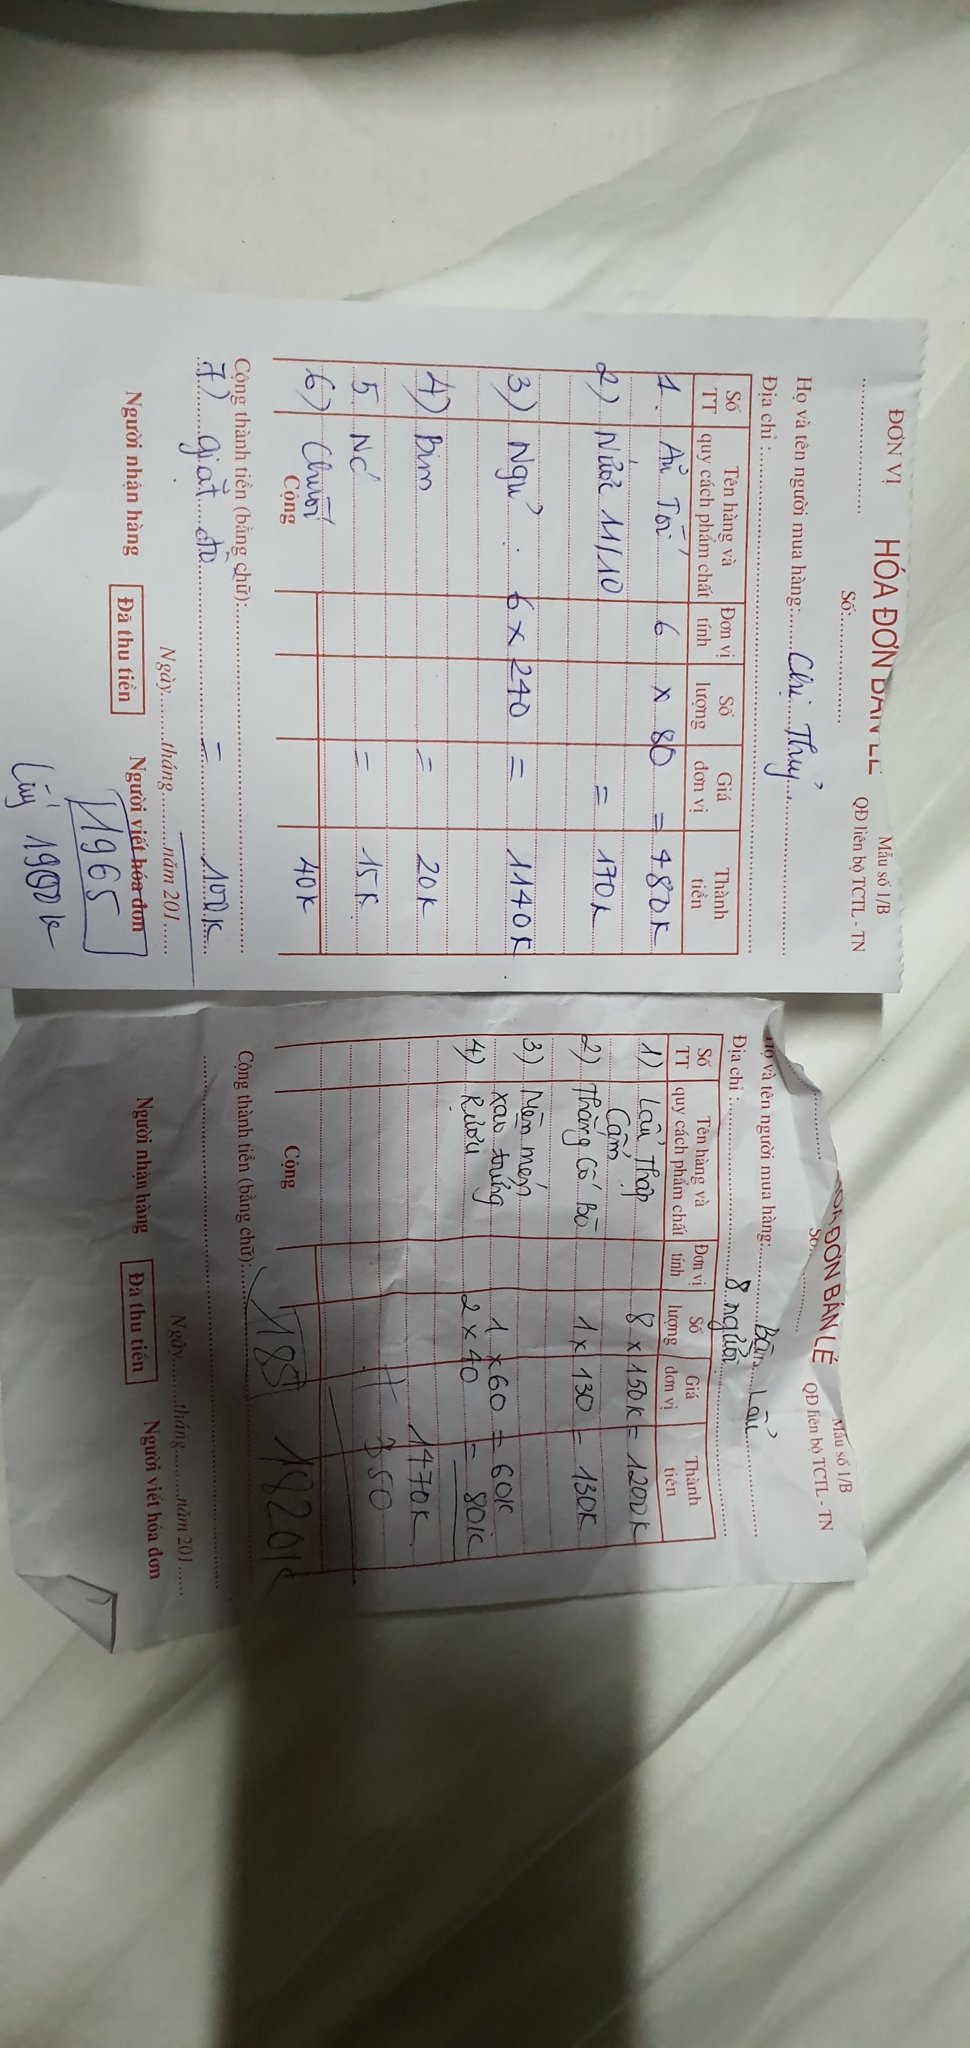 ĐƠN VỊ
HÓA ĐƠN BÁN LẺ
Mẫu số 1/B
QĐ liên bộ TCTL - TN
Số:
Họ và tên người mua hàng: Chị Thuỷ
Địa chỉ :
Số TT Tên hàng và quy cách phẩm chất Đơn vị tính Số lượng Giá đơn vị Thành tiền
1. Ăn Tối 6 x 80 = 480k
2) Nước 11/10 = 170k
3) Ngủ : 6 x 240 = 1140k
4) Bim = 20k
5 Nć = 15k
6) Chuối 40k
Cộng
Cộng thành tiền (bằng chữ):
7) giặt đồ = 100k
Ngày.........tháng.........năm 201......
Người nhận hàng Đã thu tiền Người viết hóa đơn
1965
Lấy 1900k
HÓA ĐƠN BÁN LẺ
Mẫu số 1/B
QĐ liên bộ TCTL - TN
Số:
Họ và tên người mua hàng: Bàn Lẩu
Địa chỉ : 8 người
Số TT Tên hàng và quy cách phẩm chất Đơn vị tính Số lượng Giá đơn vị Thành tiền
1) Lẩu Thập Cẩm 8 x 150k = 1200k
2) Thắng Cố Bò 1 x 130 = 130k
3) Mầm men xào trứng 1 x 60 = 60k
4) Rượu 2 x 40 = 80k
1470k
+ 350
Cộng 1820k
Cộng thành tiền (bằng chữ): 185
Ngày.........tháng.........năm 201......
Người nhận hàng Đã thu tiền Người viết hóa đơn